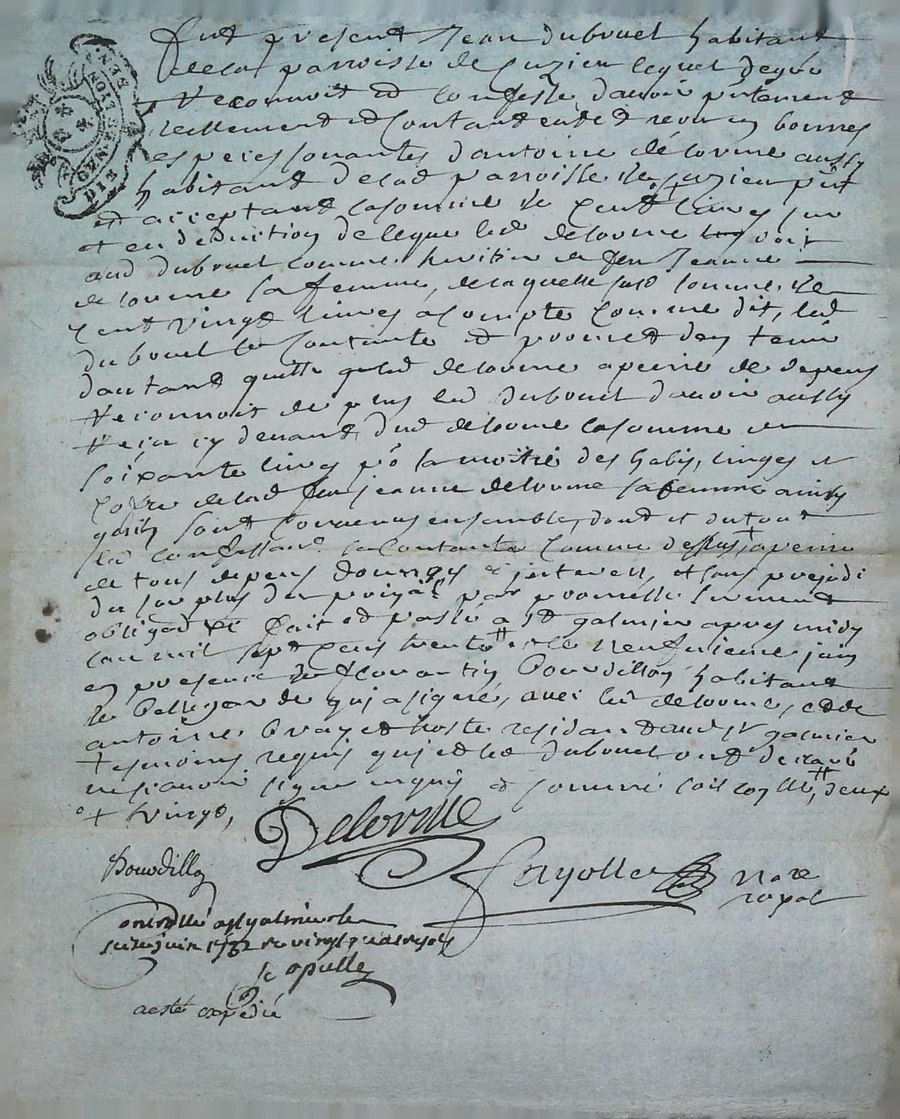 GEN. DE LION
DIX DEN
fut present Jean dubouet habitant
de la parroisse de Cuzieu lequel de gré
Reconnoit et Confesse d'avoir p̃ntement
reellement et Contant eu et receu en bonnes
especes sonantes d'antoine delorme aussy
habitant de lad parroisse de Cuzieu p̃nt
et acceptant la somme de Cent + livres sur
et en deduction de ce que led delorme doit
aud dubouet comme heritier de feu Jeanne
delorme sa femme, de laquelle susd somme de
Cent Vingt livres a compte Comme dit, led
dubouet se Contante et promet d'en tenir
d'autant quitte qued delorme a peine de depens
Reconnoit de plus led dubouet d'avoir aussy
Reçu cy devant dud delorme la somme de
soixante livres p̃r la moitié des habis, linges et
Cofre de lad feu jeanne delorme sa femme ainsy
qu'ils sont Convenus ensemble, dont et du tout
led confessant se Contante Comme dessus, a peine
de tous depens domages et interets, et sans prejudi
du surplus par promesse serment
obligaõn &c fait et passé a St galmier apres midy
l'an mil sept cens trente et le neufvieme juin
en presence de florantin Bourdillon habitant
le qui a signé, avec led delorme, et de
antoine hoste residant aud St galmier
tesmoins requis qui et led dubouet ont declaré
ne sçavoir signer enquis et sommé soit , deux
+ Vingt,
Delorme
Bourdillon
Fayolle nore
royal
Controllé a St galmier le
seize juin 1732 re vingt quatre sols
a esté expedié